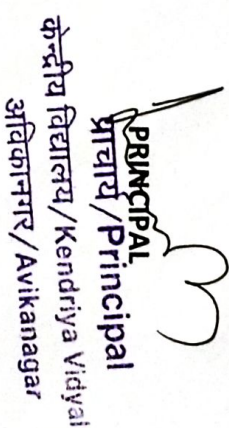 PRINCIPAL
प्राचार्य/Principal
केन्द्रीय विद्यालय/Kendriya Vidyal
अविकानगर/Avikanagar